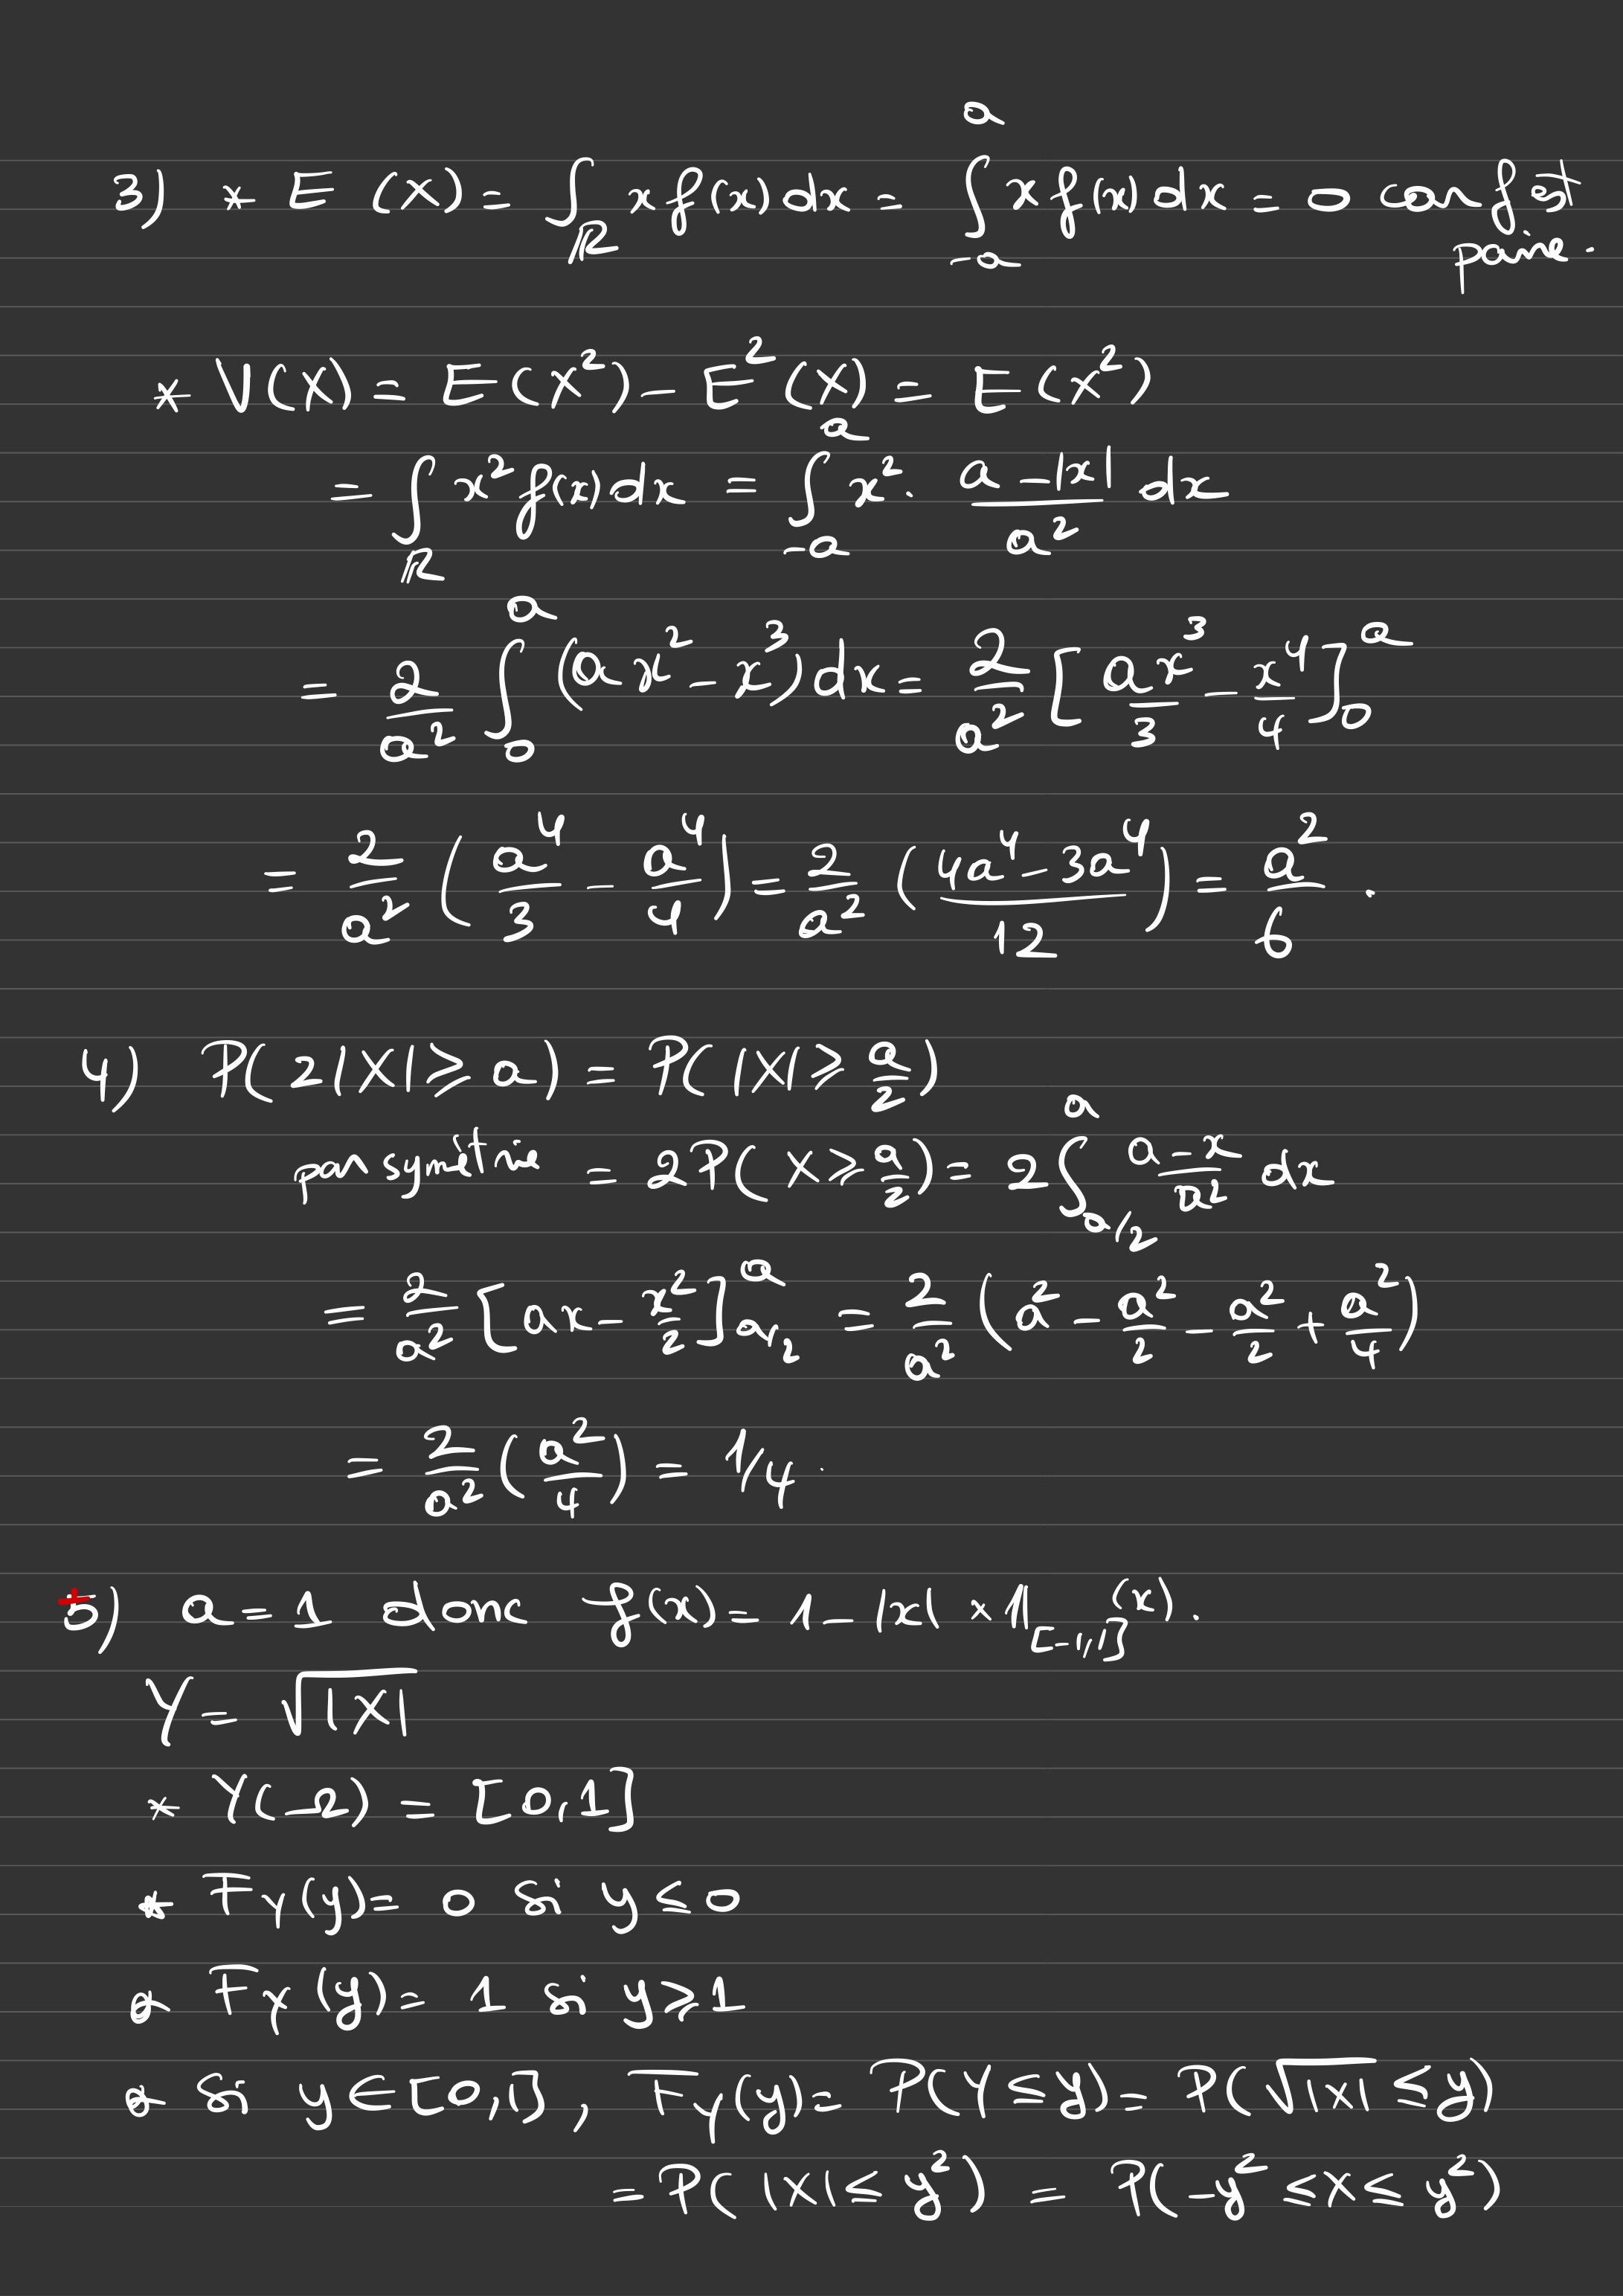 3) * E(X) = ∫_ℝ x f(x) dx = ∫_{-a}^{a} x f(x) dx = 0 car f est paire.
* V(X) = E(X²) - E²(X) = E(X²)
= ∫_ℝ x² f(x) dx = ∫_{-a}^{a} x² · (a - |x|)/a² dx
= 2/a² ∫_0^a (a x² - x³) dx = 2/a² [a x³/3 - x⁴/4]_0^a
= 2/a² (a⁴/3 - a⁴/4) = 2/a² ((4a⁴ - 3a⁴)/12) = a²/6 .
4) P(2|X| ≥ a) = P(|X| ≥ a/2)
par symétrie = 2P(X ≥ a/2) = 2 ∫_{a/2}^{a} (a - x)/a² dx
= 2/a² [ax - x²/2]_{a/2}^{a} = 2/a² (a² - a²/2 - a²/2 + a²/4)
= 2/a² (a²/4) = 1/4 .
5) a = 1 donc f(x) = 1 - |x| × 𝟙_{[-1,1]}(x) .
Y = √|X|
* Y(Ω) = [0,1]
* F_Y(y) = 0 si y ≤ 0
* F_Y(y) = 1 si y ≥ 1
* si y ∈ [0,1], F_Y(y) = P(Y ≤ y) = P(√|X| ≤ y)
= P(|X| ≤ y²) = P(-y² ≤ X ≤ y²)